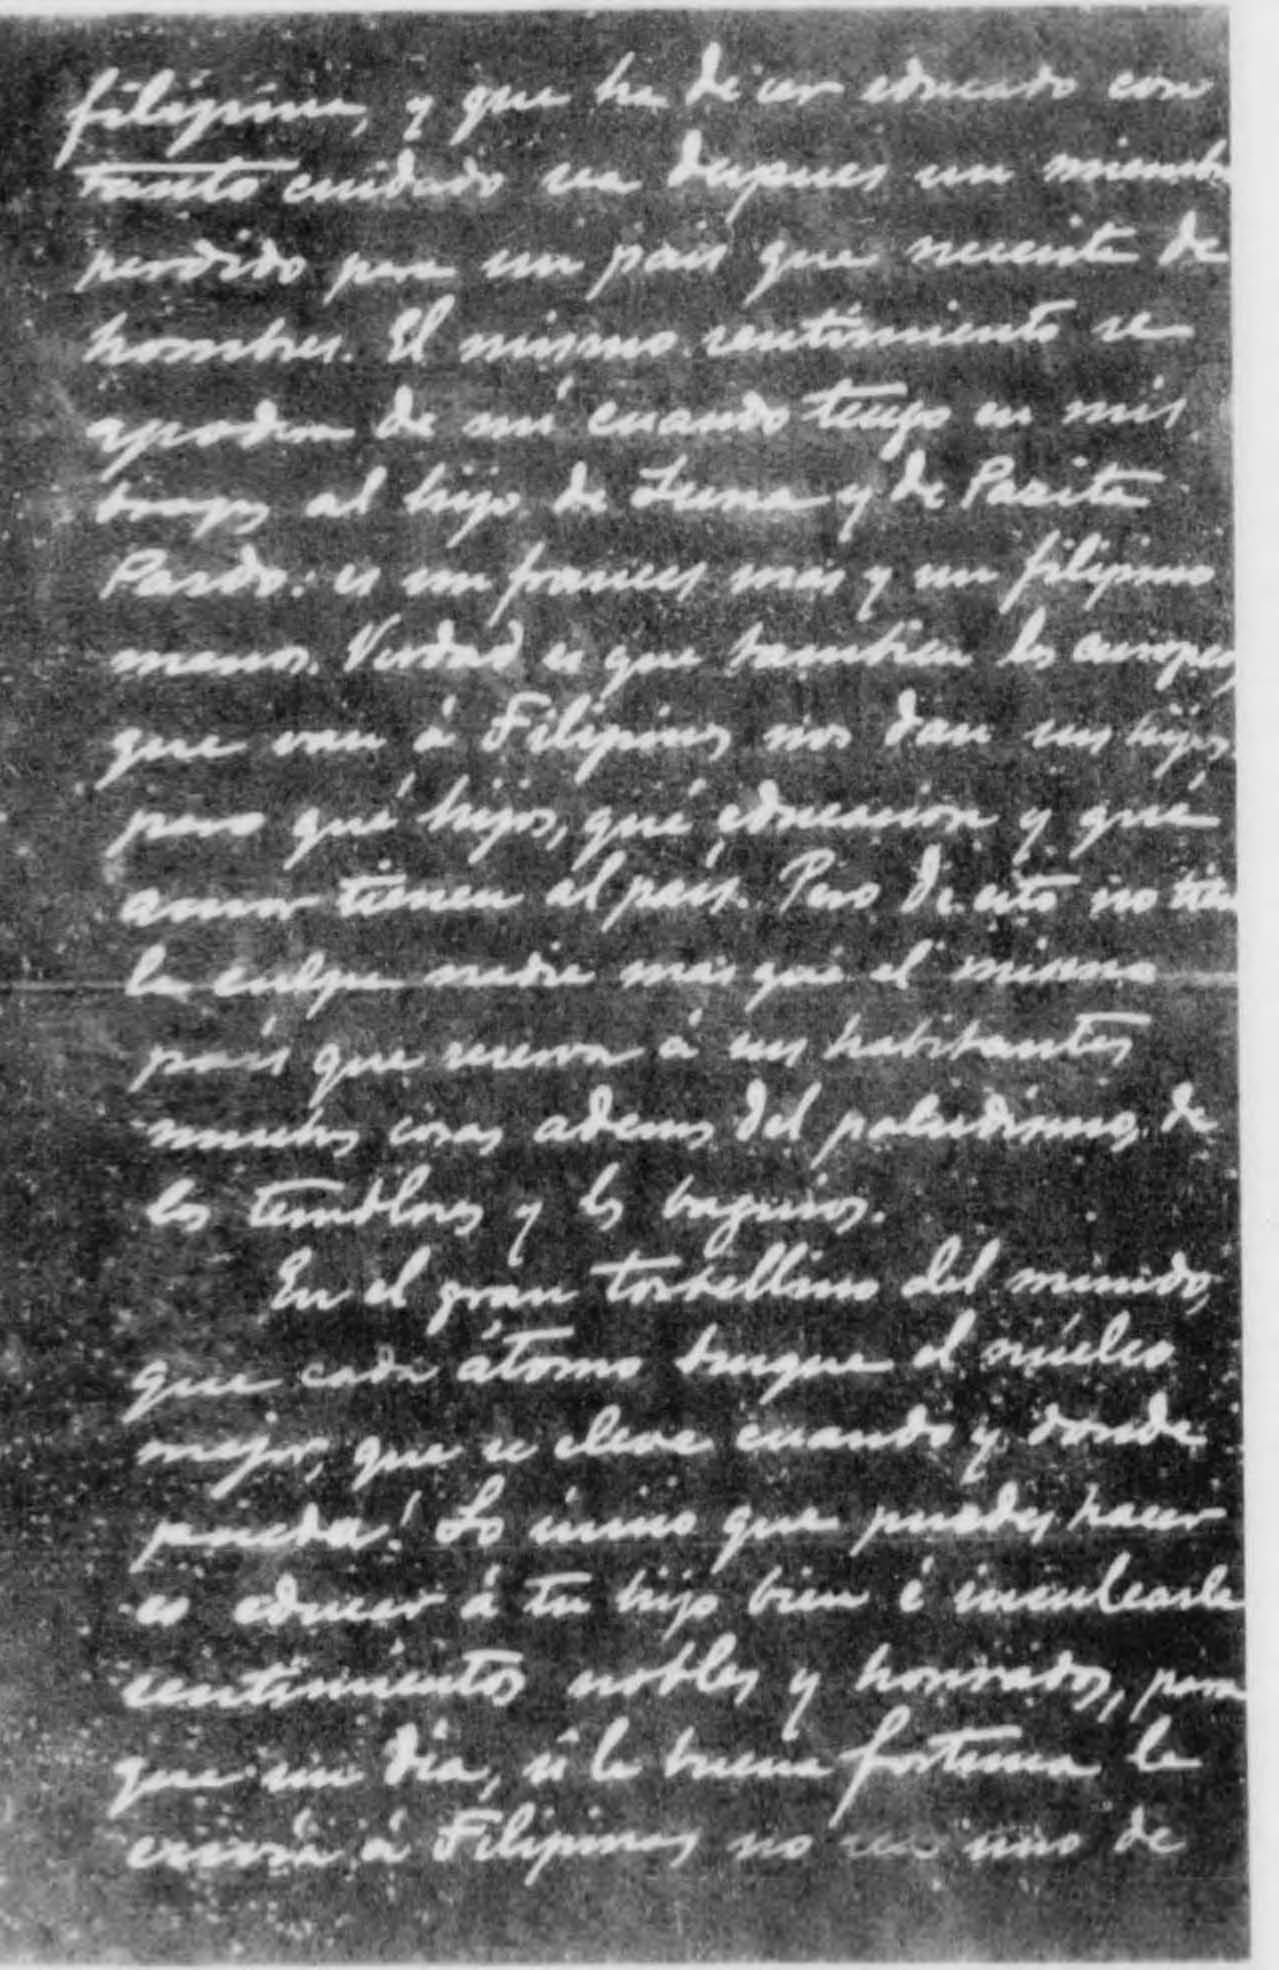 filipina, y que ha de ser educado con
tanto cuidado sea despues un miembro
perdido para un pais que necesita de
hombres. El mismo sentimiento se
apodera de mí cuando tengo en mis
brazos al hijo de Luna y de Pazita
Pardo: es un frances mas y un filipino
menos. Verdad es que tambien los europeos
que van á Filipinas nos dan sus hijos
pero qué hijos, qué educacion y qué
amor tienen al país. Pero de esto no tiene
la culpa nadie mas que el mismo
pais que reserva á sus habitantes
muchas cosas ademas del paludismo, de
los temblores y los baguios.
En el gran torbellino del mundo,
que cada átomo busque el núcleo
mejor, que se eleve cuando y donde
pueda! Lo único que puedes hacer
es educar á tu hijo bien é inculcarle
sentimientos nobles y honrados, para
que un dia, si la buena fortuna le
envia á Filipinas no sea uno de